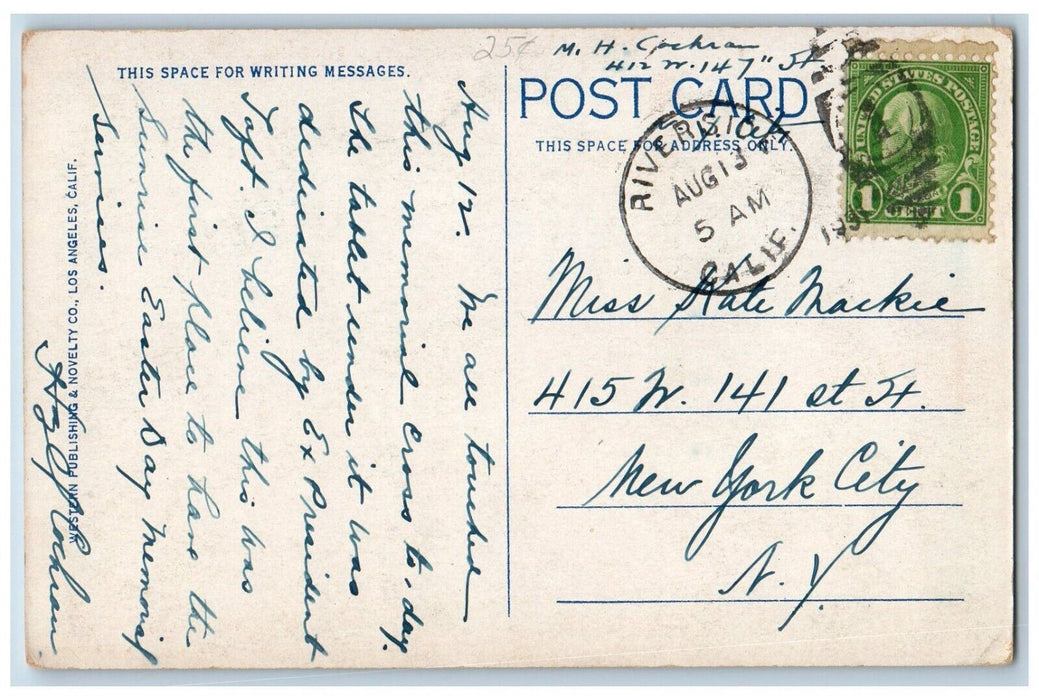 25¢
M. H. Cochran
412 W. 147" St
N. Y. City
THIS SPACE FOR WRITING MESSAGES.
POST CARD
THIS SPACE FOR ADDRESS ONLY.
RIVERSIDE
AUG 13
5 AM
CALIF.
UNITED STATES POSTAGE
1 CENT 1
Aug 12. We all touched
this memorial cross to-day.
The tablet under it was
dedicated by Ex President
Taft. I believe this was
the first place to have the
Sunrise Easter Day Memorial
Services.
Hazel Cochran
WESTERN PUBLISHING & NOVELTY CO., LOS ANGELES, CALIF.
Miss Kate Mackie
415 W. 141 st St.
New York City
N. Y.